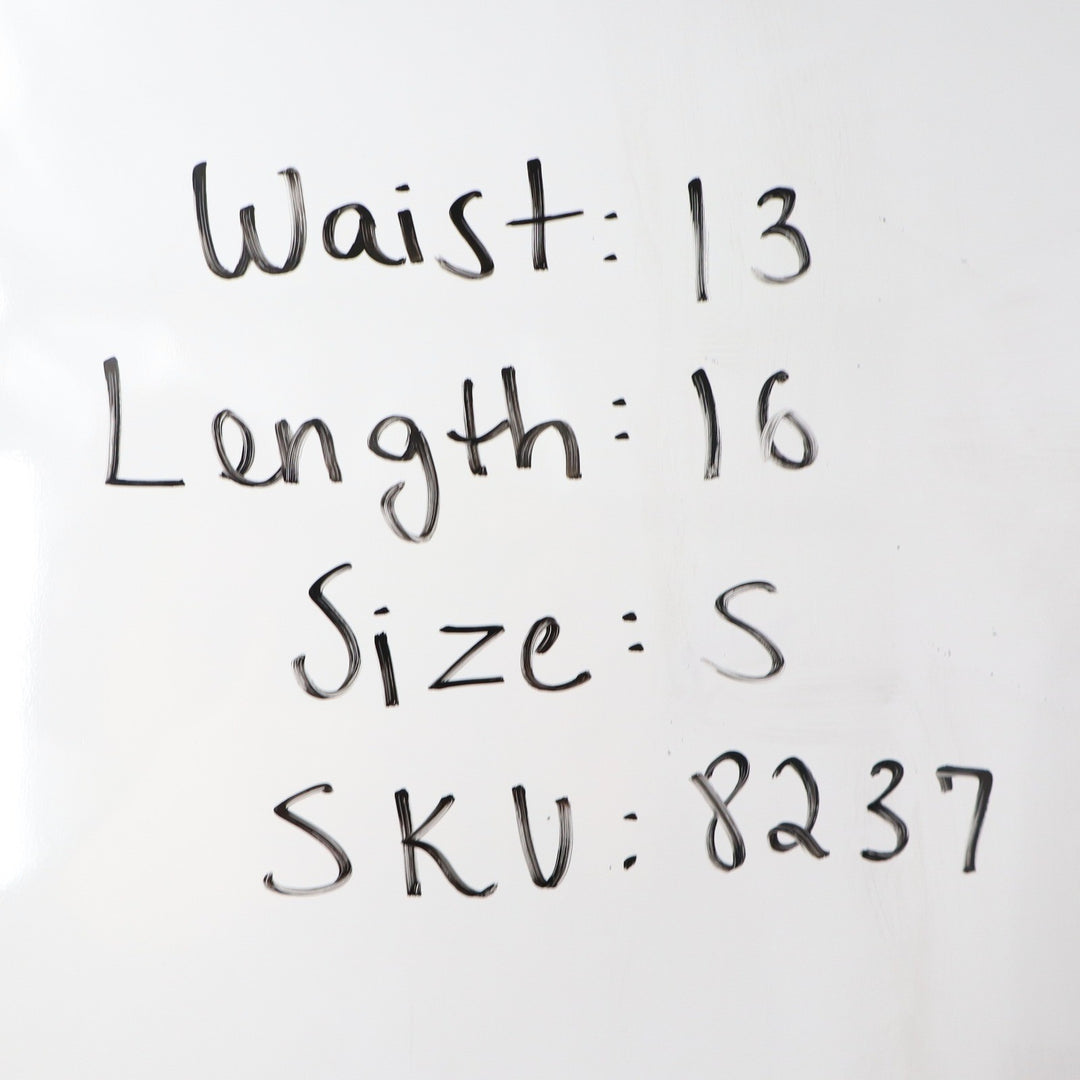 Waist: 13
Length: 16
Size: S
SKU: 8237